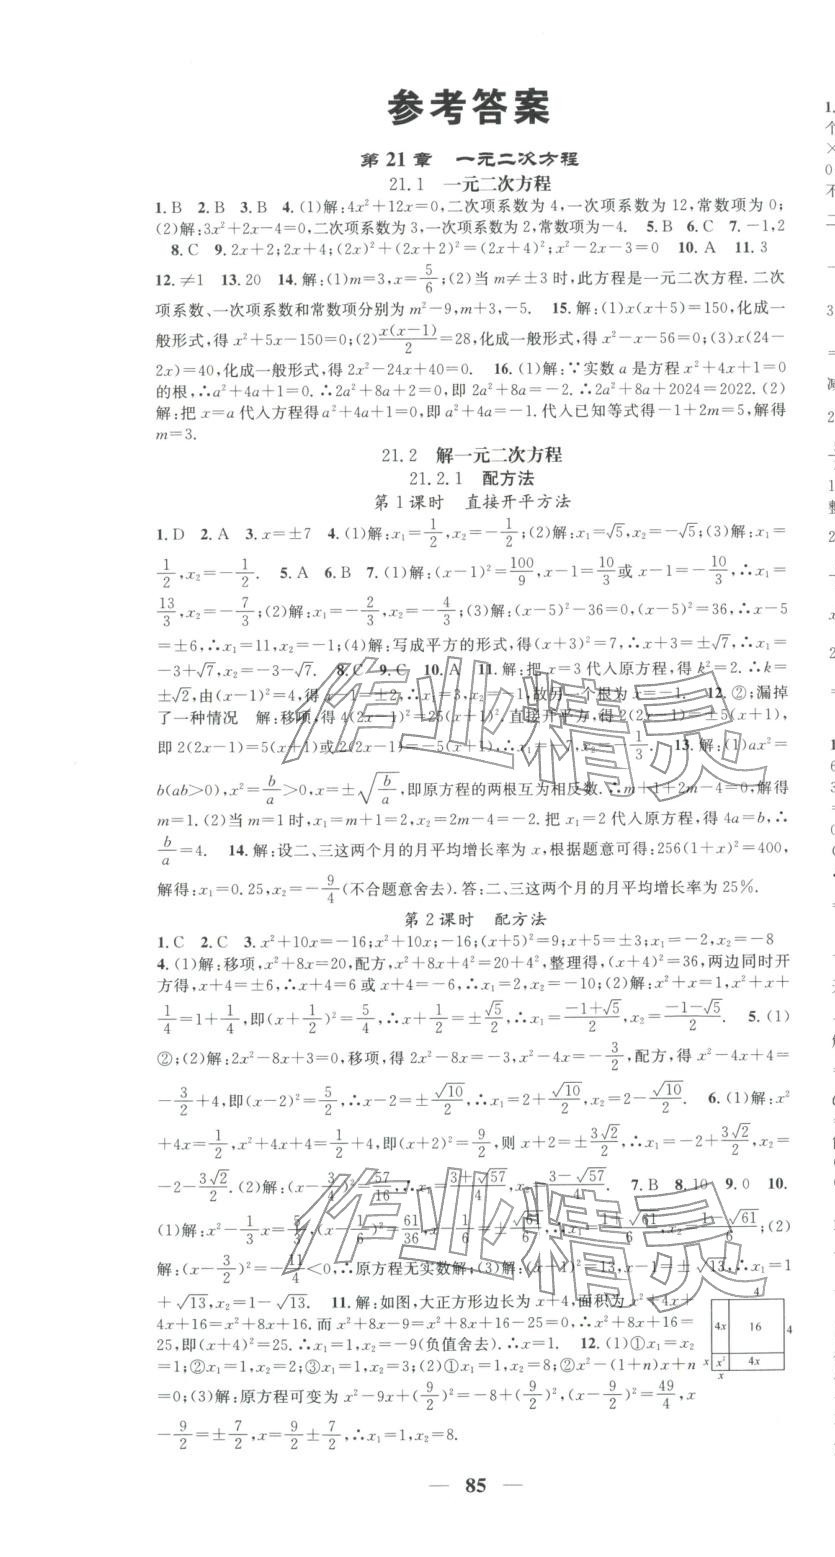 参考答案
第21章 一元二次方程
21.1 一元二次方程
1.B 2.B 3.B 4.(1)解:4x²+12x=0,二次项系数为4,一次项系数为12,常数项为0;
(2)解:3x²+2x-4=0,二次项系数为3,一次项系数为2,常数项为-4. 5.B 6.C 7.-1,2
8.C 9.2x+2;2x+4;(2x)²+(2x+2)²=(2x+4)²;x²-2x-3=0 10.A 11.3
12.≠1 13.20 14.解:(1)m=3,x=5/6;(2)当m≠±3时,此方程是一元二次方程.二次
项系数、一次项系数和常数项分别为m²-9,m+3,-5. 15.解:(1)x(x+5)=150,化成一
般形式,得x²+5x-150=0;(2)x(x-1)/2=28,化成一般形式,得x²-x-56=0;(3)x(24-
2x)=40,化成一般形式,得2x²-24x+40=0. 16.(1)解:∵实数a是方程x²+4x+1=0
的根,∴a²+4a+1=0.∴2a²+8a+2=0,即2a²+8a=-2.∴2a²+8a+2024=2022.(2)
解:把x=a代入方程得a²+4a+1=0,即a²+4a=-1.代入已知等式得-1+2m=5,解得
m=3.
21.2 解一元二次方程
21.2.1 配方法
第1课时 直接开平方法
1.D 2.A 3.x=±7 4.(1)解:x₁=1/2,x₂=-1/2;(2)解:x₁=√5,x₂=-√5;(3)解:x₁=
1/2,x₂=-1/2. 5.A 6.B 7.(1)解:(x-1)²=100/9,x-1=10/3或x-1=-10/3,∴x₁=
13/3,x₂=-7/3;(2)解:x₁=-2/3,x₂=-4/3;(3)解:(x-5)²-36=0,(x-5)²=36,∴x-5
=±6,∴x₁=11,x₂=-1;(4)解:写成平方的形式,得(x+3)²=7,∴x+3=±√7,∴x₁=
-3+√7,x₂=-3-√7. 8.C 9.C 10.A 11.解:把x=3代入原方程,得k²=2.∴k=
±√2,由(x-1)²=4,得x-1=±2,∴x₁=3,x₂=-1,故另一个根为x=-1. 12.②;漏掉
了一种情况 解:移项,得4(2x-1)²=25(x+1)².直接开平方,得2(2x-1)=±5(x+1),
即2(2x-1)=5(x+1)或2(2x-1)=-5(x+1),∴x₁=-7,x₂=-1/3. 13.解:(1)ax²=
b(ab>0),x²=b/a>0,x=±√(b/a),即原方程的两根互为相反数.∴m+1+2m-4=0,解得
m=1.(2)当m=1时,x₁=m+1=2,x₂=2m-4=-2.把x₁=2代入原方程,得4a=b,∴
b/a=4. 14.解:设二、三这两个月的月平均增长率为x,根据题意可得:256(1+x)²=400,
解得:x₁=0.25,x₂=-9/4(不合题意舍去).答:二、三这两个月的月平均增长率为25%.
第2课时 配方法
1.C 2.C 3.x²+10x=-16;x²+10x;-16;(x+5)²=9;x+5=±3;x₁=-2,x₂=-8
4.(1)解:移项,x²+8x=20,配方,x²+8x+4²=20+4²,整理得,(x+4)²=36,两边同时开
方得,x+4=±6,∴x+4=6或x+4=-6,∴x₁=2,x₂=-10;(2)解:x²+x=1,x²+x+
1/4=1+1/4,即(x+1/2)²=5/4,∴x+1/2=±√5/2,∴x₁=(-1+√5)/2,x₂=(-1-√5)/2. 5.(1)
②;(2)解:2x²-8x+3=0,移项,得2x²-8x=-3,x²-4x=-3/2,配方,得x²-4x+4=
-3/2+4,即(x-2)²=5/2,∴x-2=±√10/2,∴x₁=2+√10/2,x₂=2-√10/2. 6.(1)解:x²
+4x=1/2,x²+4x+4=1/2+4,即(x+2)²=9/2,则x+2=±3√2/2,∴x₁=-2+3√2/2,x₂=
-2-3√2/2.(2)解:(x-3/4)²=57/16,∴x₁=(3+√57)/4,x₂=(3-√57)/4. 7.B 8.10 9.0 10.
(1)解:x²-1/3x=5/3,(x-1/6)²=61/36,x-1/6=±√61/6,∴x₁=(1+√61)/6,x₂=(1-√61)/6;(2)
解:(x-3/2)²=-11/4<0,∴原方程无实数解;(3)解:(x-1)²=13,x-1=±√13,∴x₁=1
+√13,x₂=1-√13. 11.解:如图,大正方形边长为x+4,面积为x²+4x+
4x+16=x²+8x+16.而x²+8x=9,x²+8x+16-25=0,∴x²+8x+16=
25,即(x+4)²=25.∴x₁=1,x₂=-9(负值舍去).∴x=1. 12.(1)①x₁=x₂
=1;②x₁=1,x₂=2;③x₁=1,x₂=3;(2)①x₁=1,x₂=8;②x²-(1+n)x+n
=0;(3)解:原方程可变为x²-9x+(9/2)²=-8+(9/2)²,(x-9/2)²=49/4,x
-9/2=±7/2,x=9/2±7/2,∴x₁=1,x₂=8.
4
4x 16 4
x x² 4x
x
— 85 —
作业精灵
作业精灵